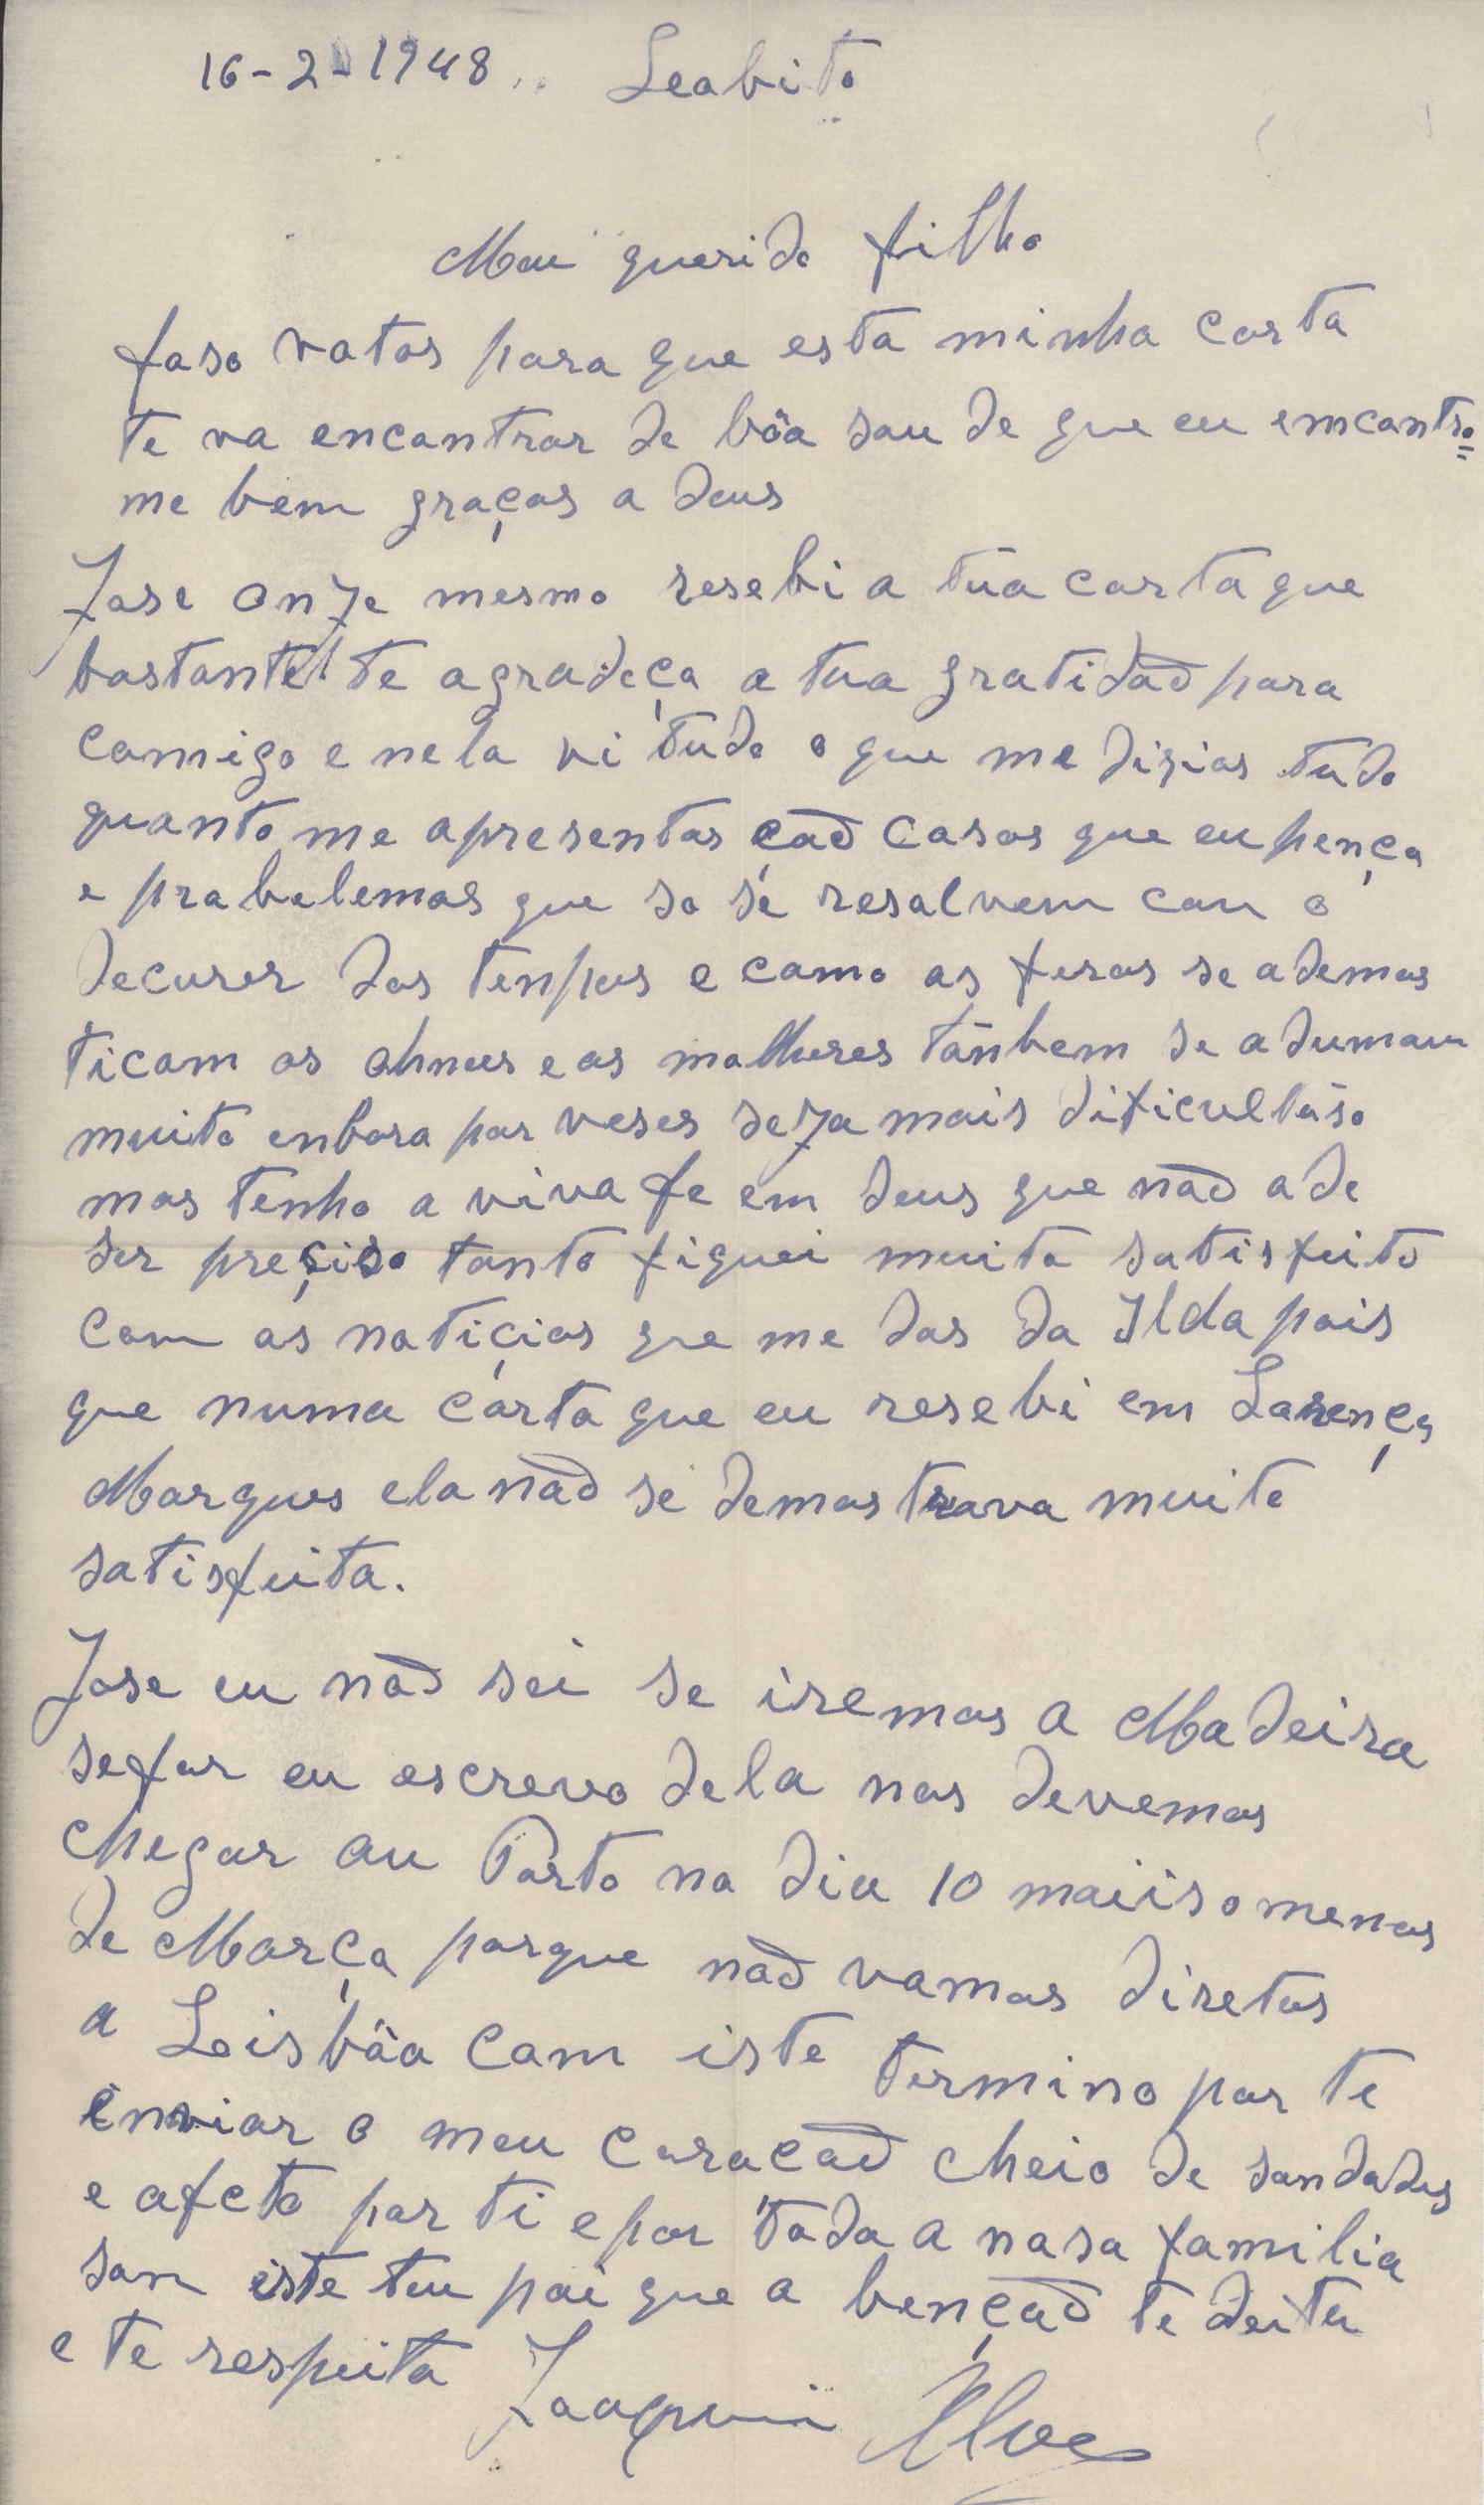 16-2-1948.. Leabito
Meu querido filho
faso votos para que esta minha carta
te va encontrar de bôa saude que eu emcontro=
me bem graças a deus
Jose onje mesmo resebi a tua carta que
bastante te agradeço a tua gratidaõ para
comigo e nela vi tudo o que me dizias tudo
quanto me apresentas çaõ casos que eu penço
e probelemas que so se resolvem con o
decurer dos tenpos e como as feras se ademos
ticam os ohmes e as molheres tãnbem se adumam
muito enbora por veses seja mais dificultuso
mas tenho a viva fe em deus que naõ ade
ser preçiso tanto fiquei muito satisfeito
com as notiçias que me das da Ilda pois
que numa carta que eu resebi em Lorenço
Marques ela naõ se demostrava muito
satisfeita.
Jose eu naõ sei se iremos a Madeira
sefor eu escrevo dela nos devemos
chegar au Porto no dia 10 maiis o menos
de Março porque naõ vamos diretos
a Leisbôa com iste termino por te
enviar o meu coracaõ cheio de saudades
e afeto por ti e por toda a nosa familia
sou este teu pai que a bençaõ te deita
e te respeita Joaquim Alves